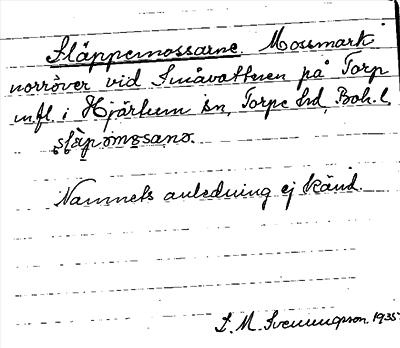 Släppemossarne. Mossmark
norröver vid Småvattnen på Torp
m.fl. i Hjärtum sn, Torpe hd, Boh. l.
släpəmosanə.
Namnets anledning ej känd.
S. M. Svenungsson. 1935.